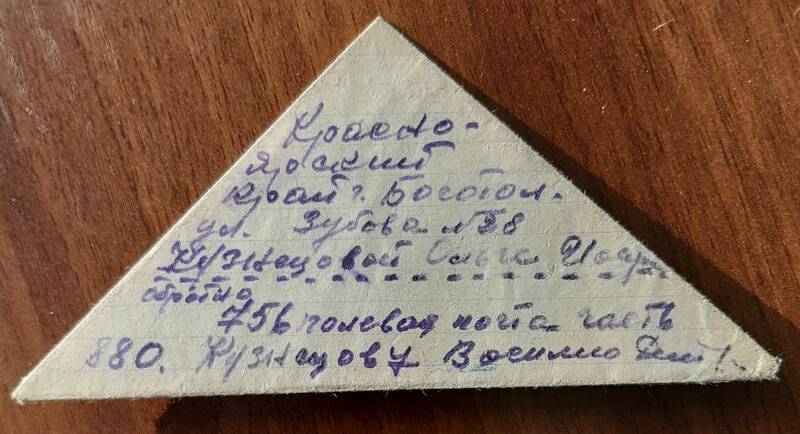 Красно-
ярский
край г. Боготол.
ул. Зубова №28
Кузнецовой Ольге
обратно
756 полевая почта часть
880. Кузнецову Василию Дмит.